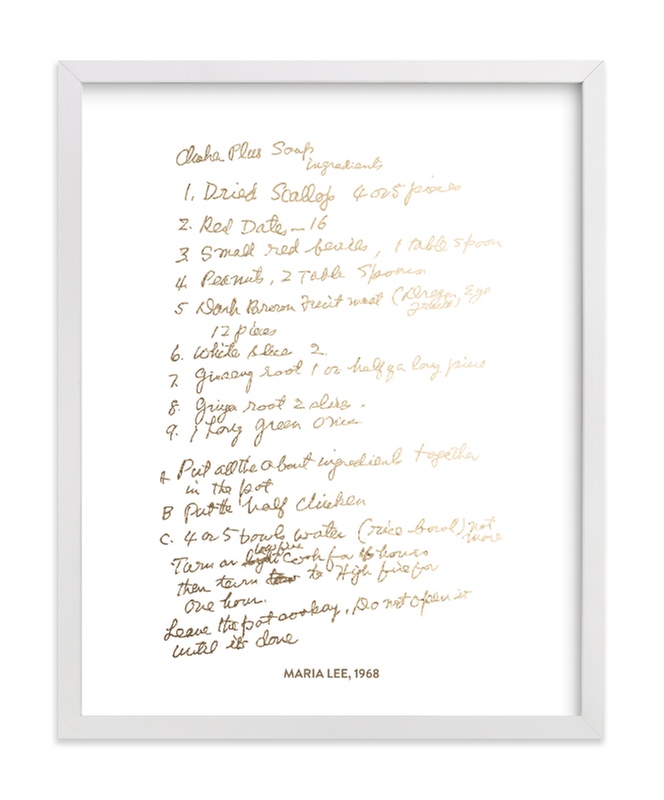 Plus Soup
ingredients
1. Dried Scallop 4 or 5 pieces
2. Red Dates - 16
3. Small red berries, 1 table spoon
4. Peanuts, 2 Table Spoons
5 Dark Brown Fruit meat (Dragon Eye
12 pieces
6. White slice 2.
7. Ginseng root 1 or half of a long piece
8. Ginger root 2 slices.
9. 1 Long green onion
A Put all the about ingredients together
in the pot
B Put the half chicken
C. 4 or 5 bowls water (rice bowl) not
more
Turn on Cook for hours
then turn to High fire for
One hour.
Leave the pot . Do not open it
until it's done
MARIA LEE, 1968